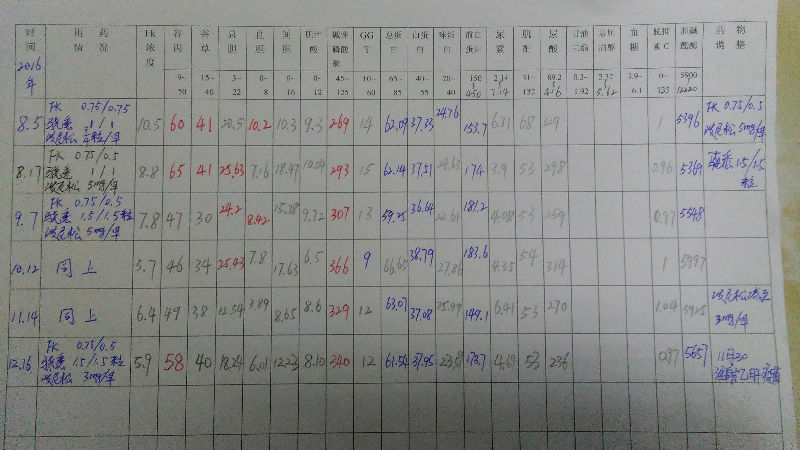 时间 用药情况 FK浓度 谷丙 谷草 总胆 直胆 间胆 胆汁酸 碱性磷酸酶 GGT 总蛋白 白蛋白 球蛋白 前白蛋白 尿素 肌酐 尿酸 甘油三酯 总胆固醇 血糖 胱抑素C 胆碱酯酶 药物调整
2016年 9-50 15-40 3-22 0-8 0-16 0-12 45-125 10-60 65-85 40-55 20-40 150 450 2.14 7.14 31-132 89.2 416 0.2-1.92 2.32 5.62 3.9-6.1 0-135 5900 12220
8.5 FK 0.75/0.75 10.5 60 41 20.5 10.2 10.3 9.3 269 14 62.09 37.33 24.76 153.7 6.71 68 329 1 5396 FK 0.75/0.5
1/1
5mg/早
8.17 FK 0.75/0.5 8.8 65 41 25.63 7.16 18.47 10.04 293 15 62.14 37.51 24.63 174 3.9 53 298 0.96 5369 1.5/1.5粒
1/1
5mg/早
9.7 FK 0.75/0.5 7.8 47 30 24.2 8.42 15.78 9.72 307 13 59.25 36.64 22.61 181.2 4.08 53 259 0.97 5548
1.5/1.5粒
5mg/早
10.12 同上 5.7 46 34 25.43 7.8 17.63 6.5 366 9 66.65 38.79 27.86 183.6 4.35 54 314 1 5997
11.14 同上 6.4 49 38 12.54 3.89 8.65 8.6 329 12 63.07 37.08 25.99 149.1 6.41 53 270 1.04 5925
3mg/早
12.16 FK 0.75/0.5 5.9 58 40 18.24 6.01 12.23 8.10 340 12 61.54 37.95 23.59 4.69 53 236 0.97 5657 11月30
1.5/1.5粒 注射乙肝疫苗
3mg/早